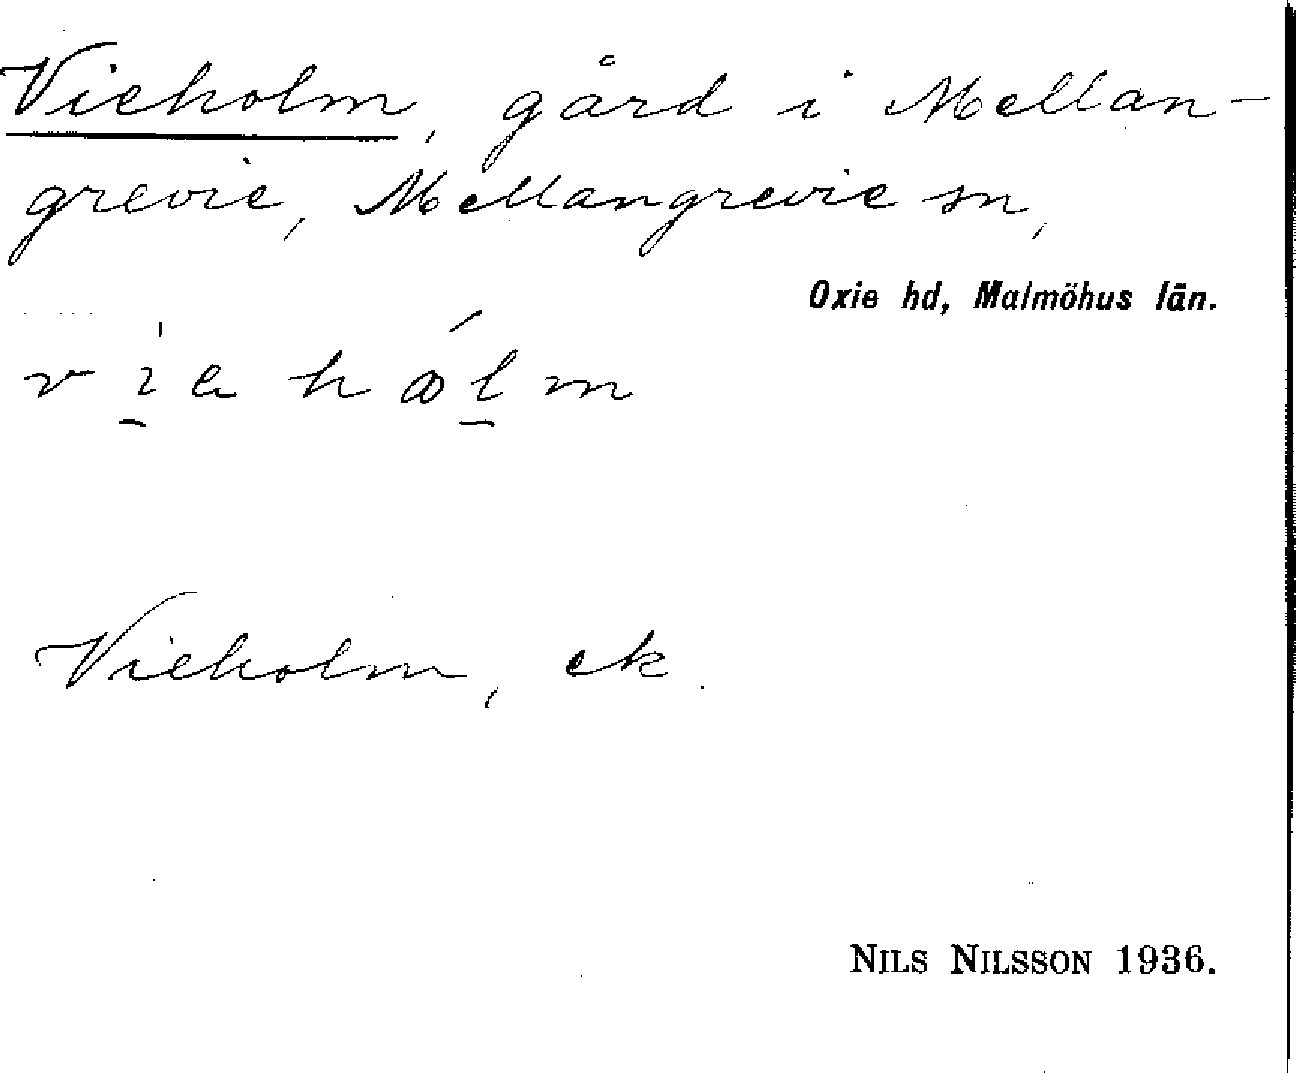 Vieholm, gård i Mellan-
grevie, Mellangrevie sn,
Oxie hd, Malmöhus län.
Vieholm, ek.
NILS NILSSON 1936.